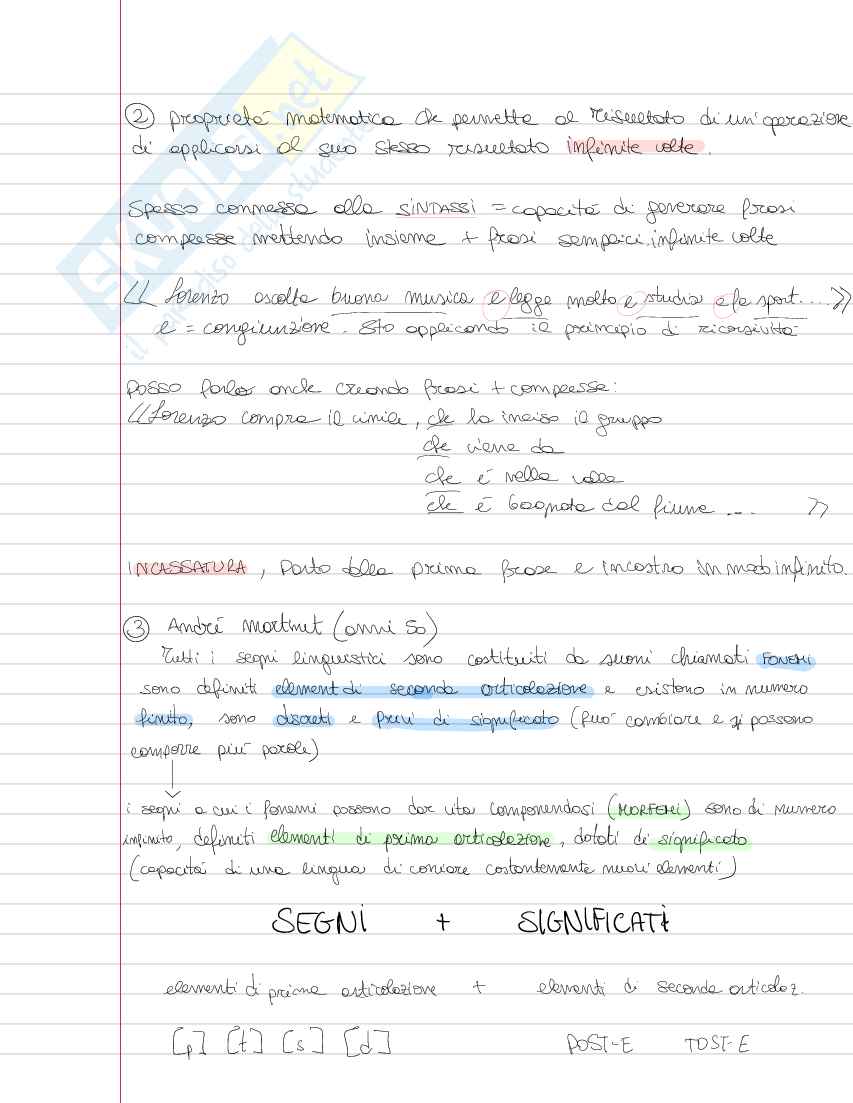 ② proprietà matematica che permette al risultato di un'operazione
di applicarsi al suo stesso risultato infinite volte.
Spesso connessa alla SINTASSI = capacità di generare frasi
complesse mettendo insieme + frasi semplici, infinite volte
<< Lorenzo ascolta buona musica e legge molto e studia e fa sport.... >>
e = congiunzione. Sto applicando il principio di ricorsività
posso farlo anche creando frasi + complesse:
<< Lorenzo compra il vinile, che ha inciso il gruppo
che viene da
che è nella valle
che è bagnata dal fiume ... >>
INCASSATURA, parto dalla prima frase e incastro in modo infinito.
③ André Martinet (anni 50)
Tutti i segni linguistici sono costituiti da suoni chiamati FONEMI
sono definiti elementi di seconda articolazione e esistono in numero
finito, sono discreti e privi di significato (può cambiare e si possono
comporre più parole)
↓
i segni a cui i fonemi possono dar vita componendosi (MORFEMI) sono di numero
infinito, definiti elementi di prima articolazione, dotati di significato
(capacità di una lingua di coniare costantemente nuovi elementi)
SEGNI + SIGNIFICATI
elementi di prima articolazione + elementi di seconda articolaz.
[p] [t] [s] [d] POST-E TOST-E
SKUOLA.net
il paradiso dello studente